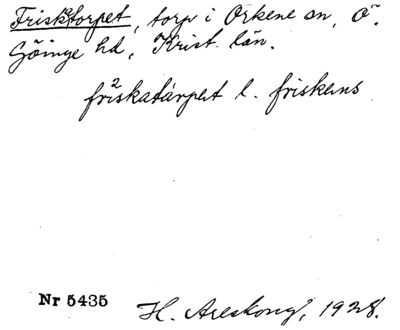 Frisktorpet, torp i Örkene sn, Ö.
Göinge hd, Krist. län.
fri²skatårpet l. friskens
Nr 5435
H. Areskong, 1928.